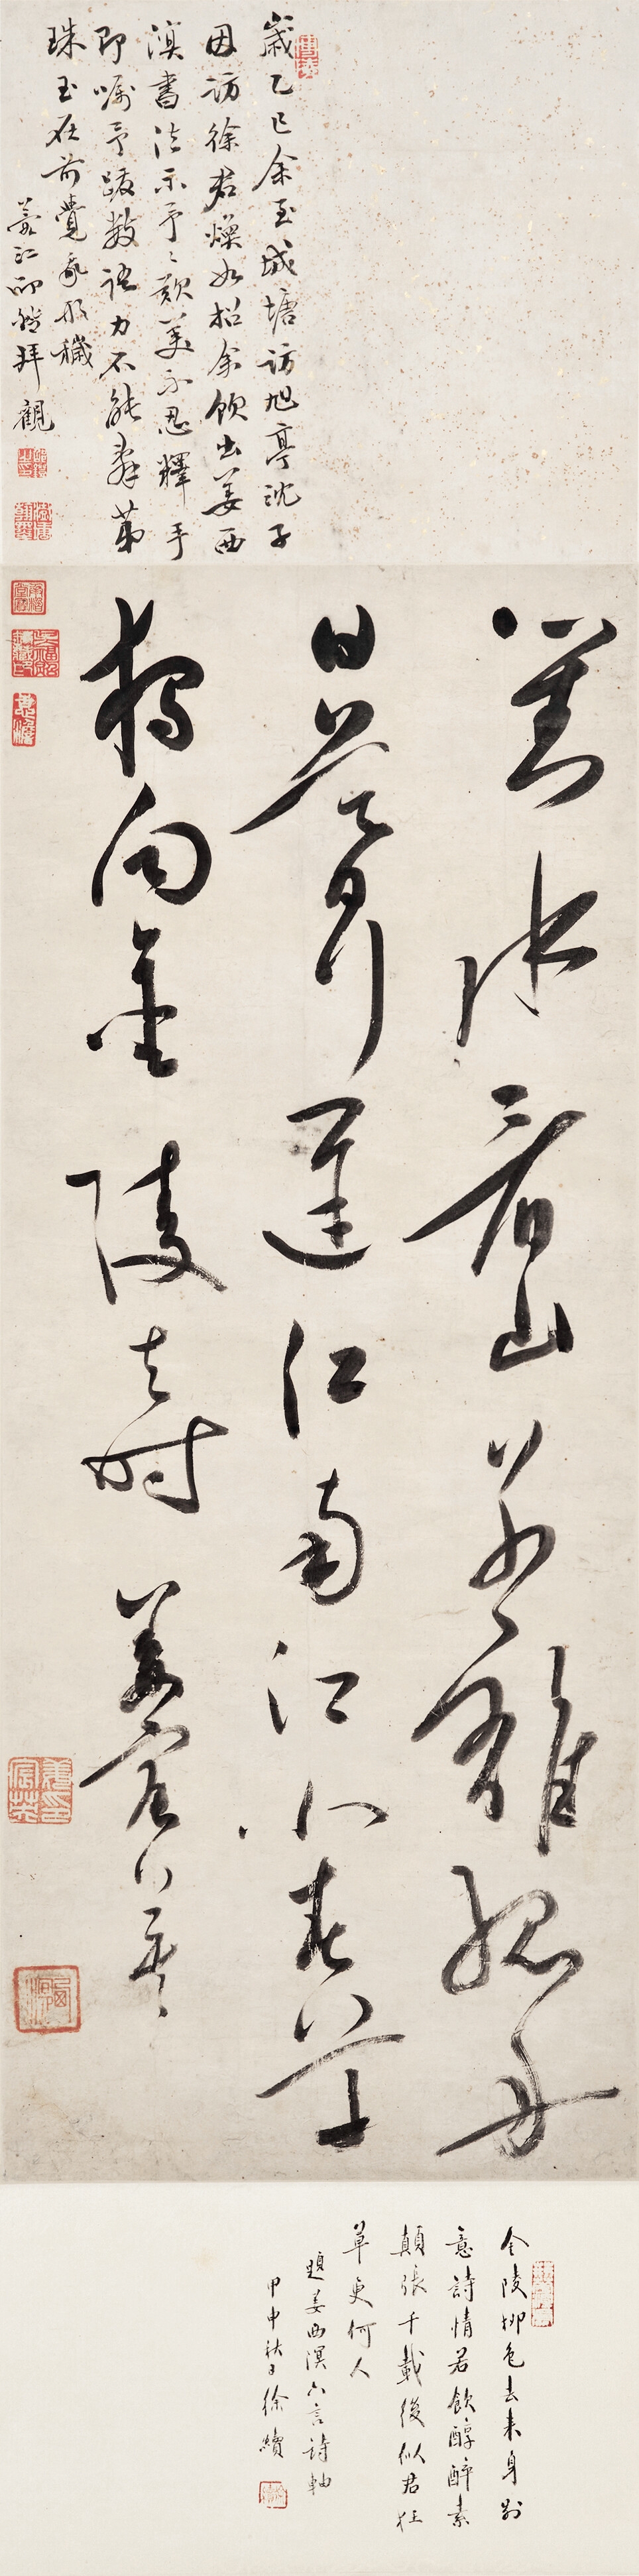 歲乙巳余至城塘訪旭亭沈子
因訪徐君燦如招余飲出姜西
溟書法示予予頗美不忍釋手
即囑予跋數語力不能辭第
珠玉在前覺我形穢
江然拜觀
對水看山別離孤舟
日暮行遲江南江北春草
獨向金陵去時 姜宸英
金陵柳色去來身別
意詩情若飲醇醉素
顛張千載後似君狂
草更何人
題姜西溟六言詩軸
甲申秋日徐纘